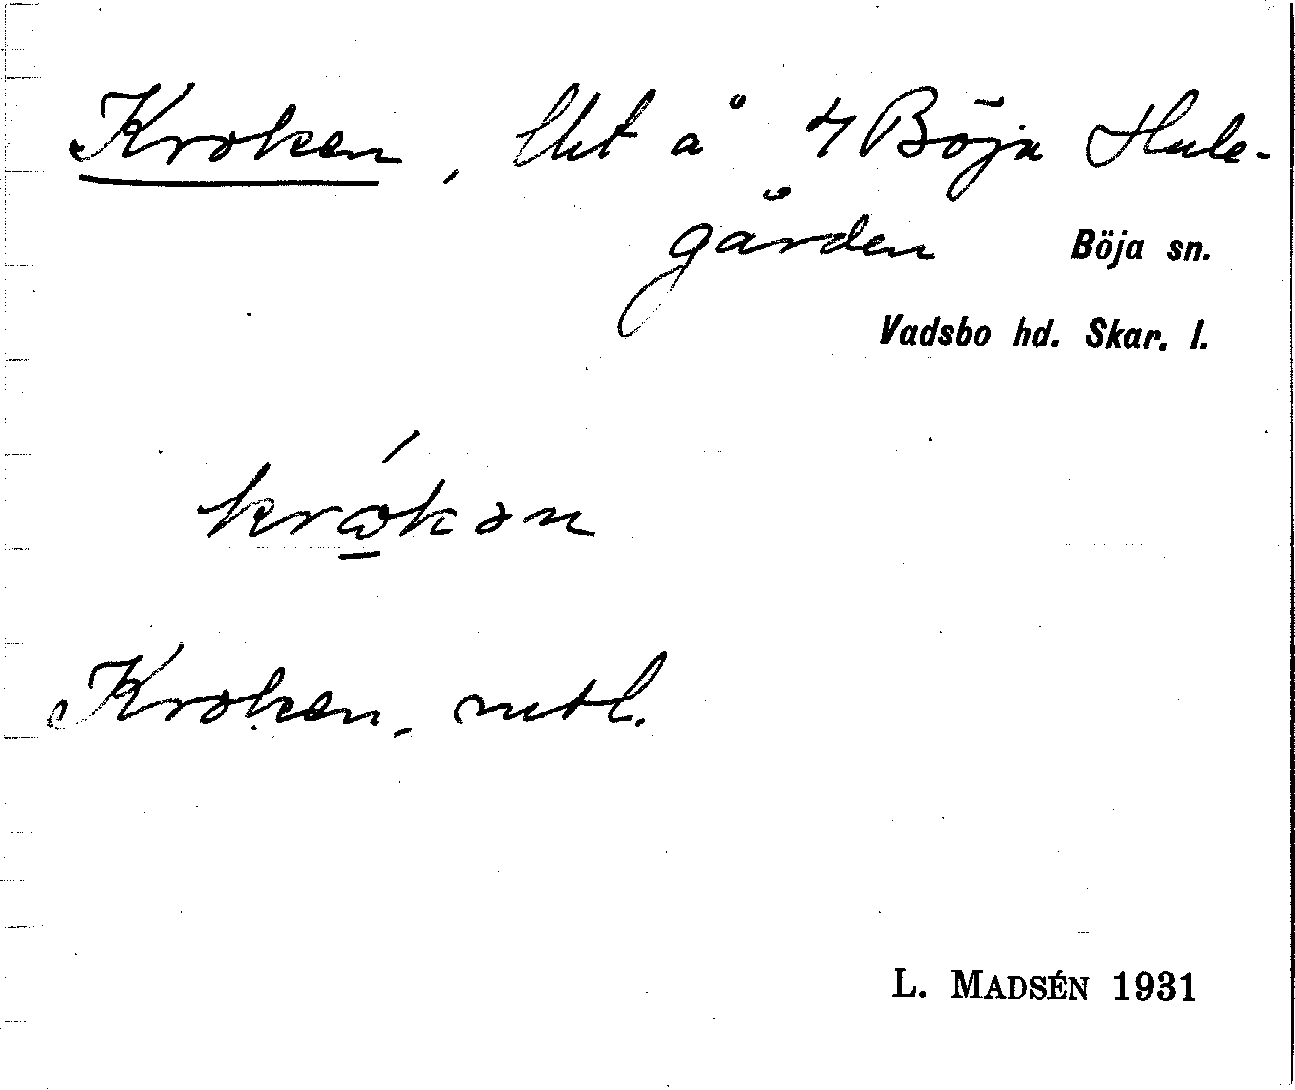 Kroken, lht å 4 Böja Hule-
gården Böja sn.
Vadsbo hd. Skar. l.
krokən
Kroken, mtl.
L. MADSÉN 1931